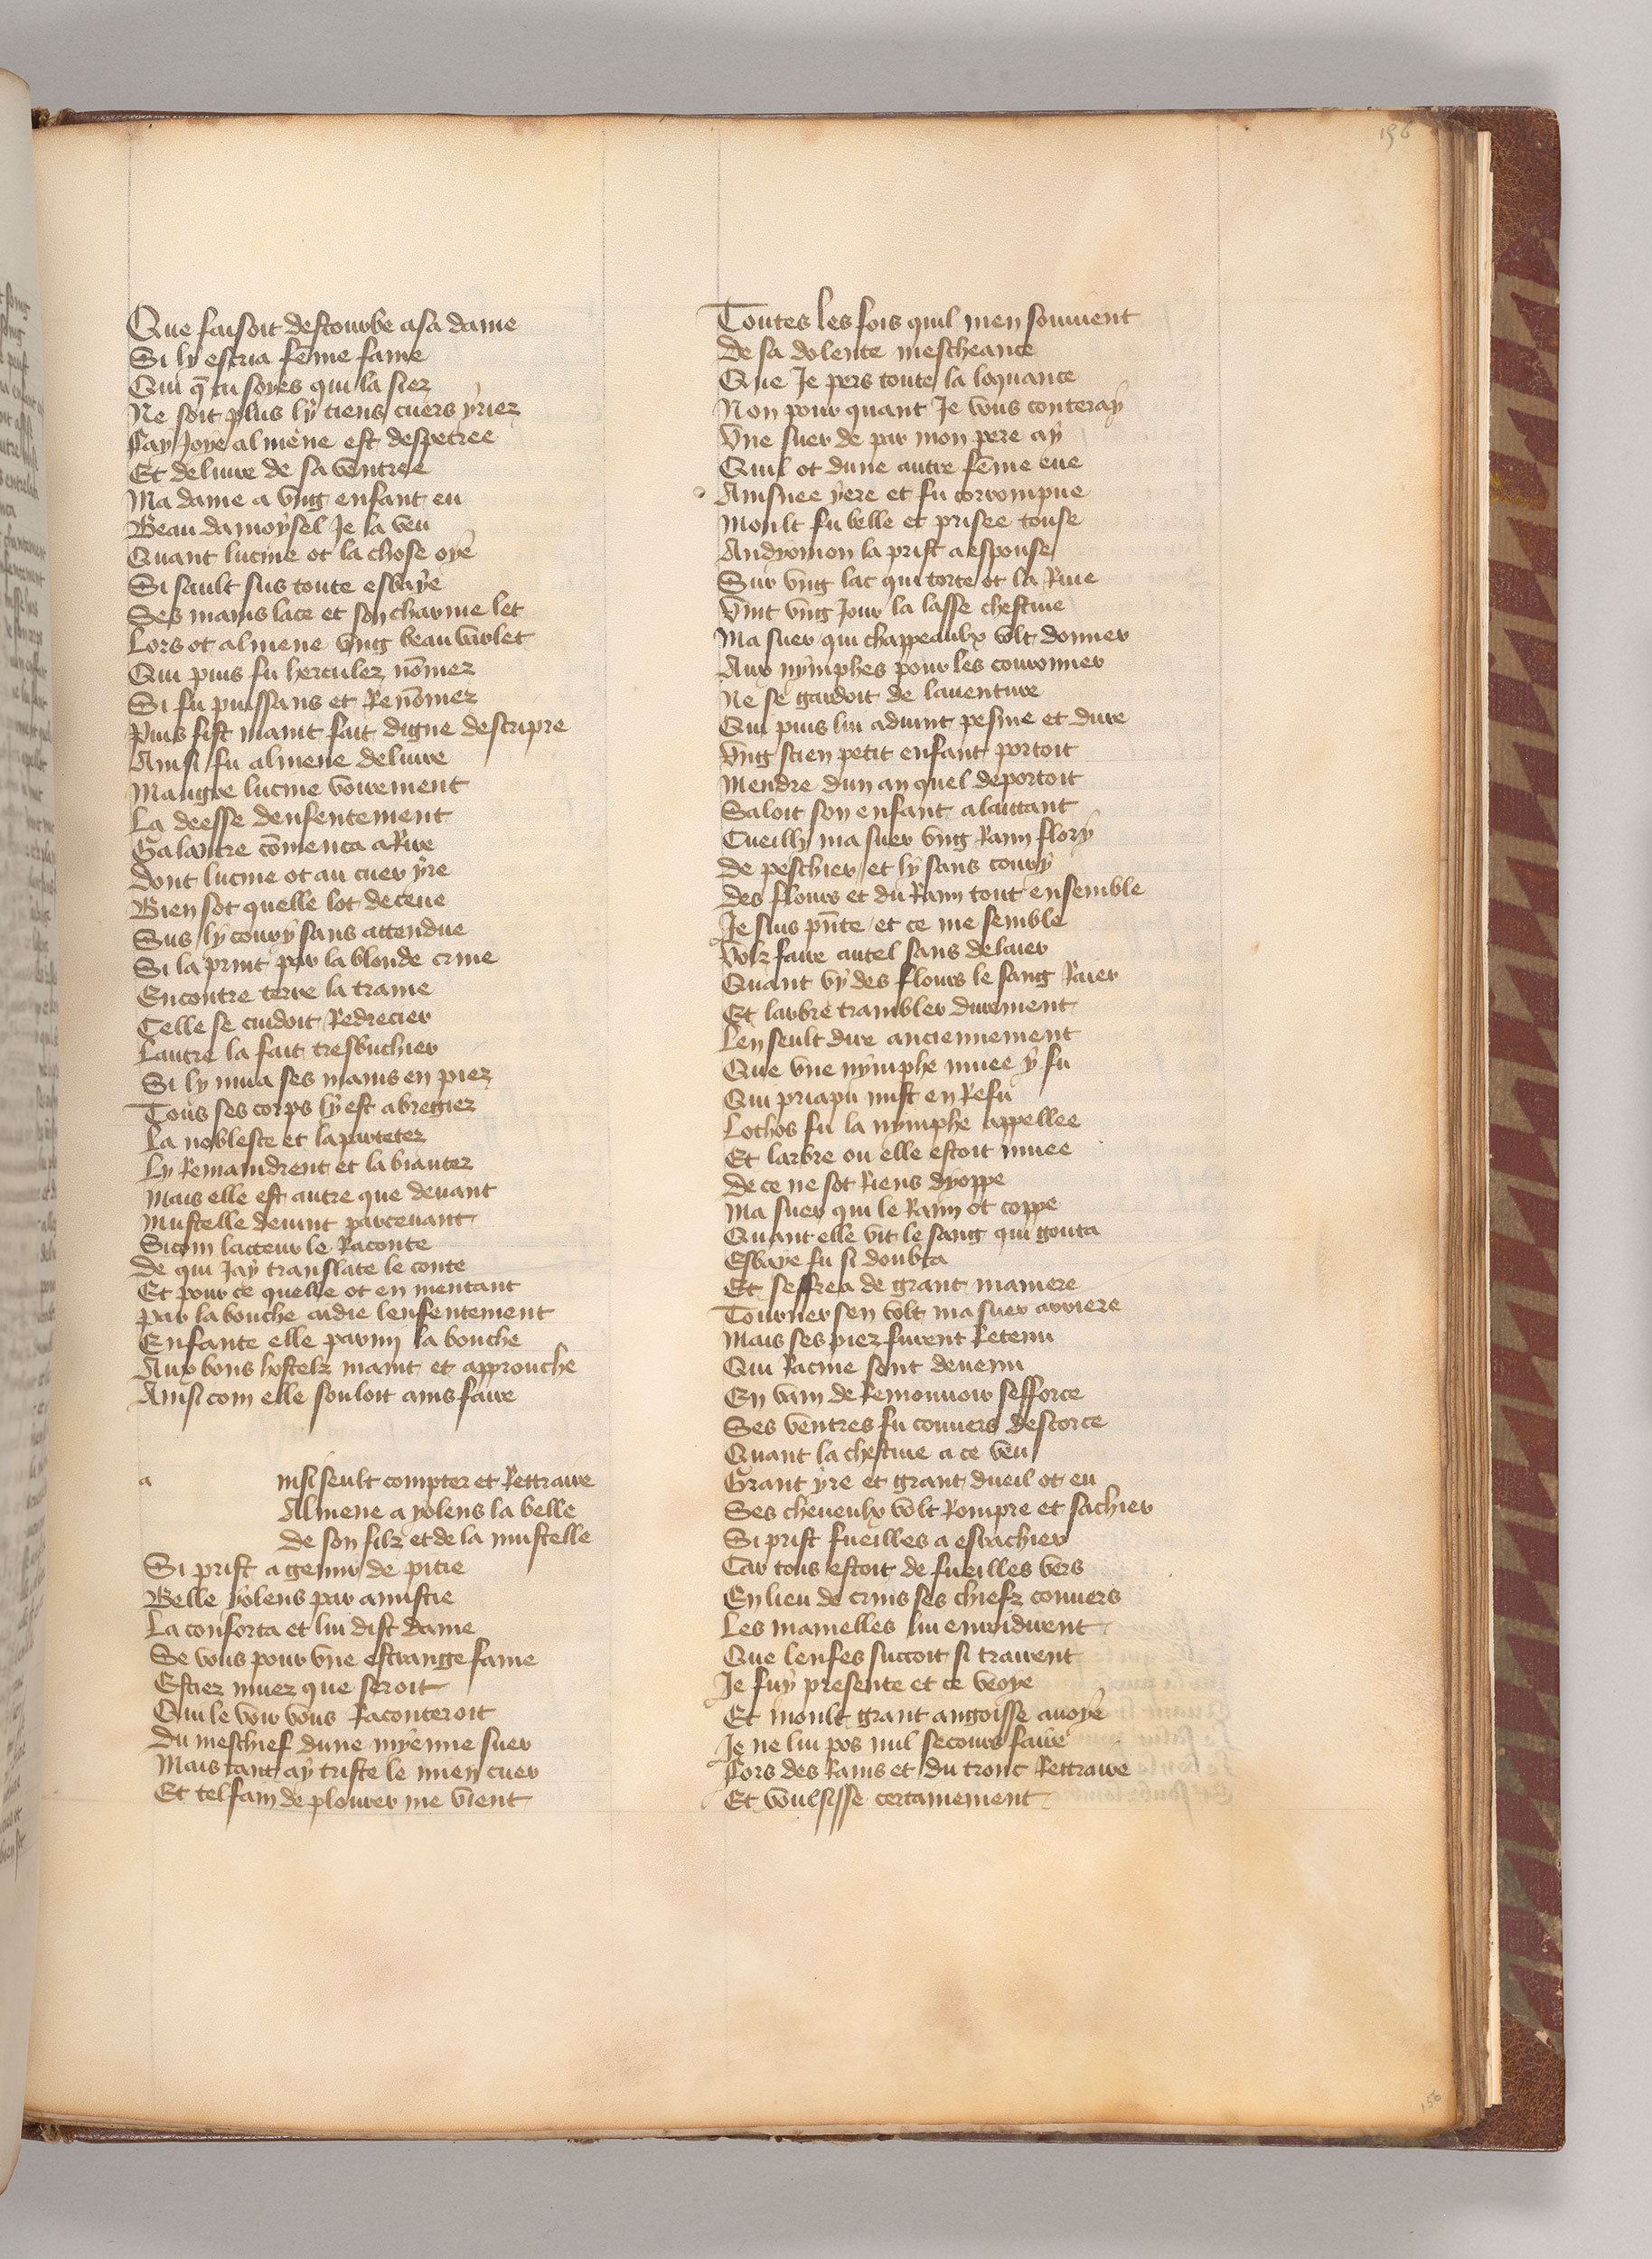 156
Que faisoit destourbe a sa dame
Si ly escria fe̅me fame
Qui q̅ tu soyes qui la siez
Ne soit plus ly tiens cuers yriez
Car Joye almene est despetree
Et deliure de sa ventree
Ma dame a vng enfant eu
Beau damoysel Je la veu
Quant lucine ot la chose oye
Si sault sus toute esbaye
Ses mains lace et son charme let
Lors ot almene vng beau varlet
Qui puis fu hercules no̅mez
Si fu puissans et Reno̅mez
Puis fist maint fait digne descripre
Ainsi fu almene deliure
Maugre lucine vouement
La deesse denfentement
Galantre co̅menca a Rire
Dont lucine ot au cuer yre
Bien sot quelle lot deceue
Sus ly coury sans attendue
Si la print par la blonde crine
Encontre terre la traine
Celle se cuidoit Redrecier
Lautre la fait tresbuchier
Si ly mua ses mains en piez
Tous ses corps ly est abregiez
La noblesce et la parteter
Ly Remaindrent et la biautez
Mais elle est autre que deuant
Mustelle deuint parceuant
Sicom lacteur le Raconte
De qui Jay translate le conte
Et pour ce quelle ot en mentant
Par la bouche aidie lenfentement
Enfante elle parmy la bouche
Aux bons hostelz maint et approuche
Ainsi com elle souloit ains faire
a insi seult compter et Rettraire
Almene a yolens la belle
De son filz et de la mustelle
Si prist a gemir de pitie
Belle yolens par amistie
La conforta et lui dist dame
Se vous pour vne estrange fame
Estiez muez que seroit
Qui le voir vous Raconteroit
Du meschief dune myenne suer
Mais tant ay triste le mien cuer
Et tel fain de plourer me vient
Toutes les fois quil men souuient
De sa dolente mescheance
Que Je pers toute la loquance
Non pour quant Je vous conteray
Vne suer de par mon pere ay
Quil ot dune autre fe̅me eue
Ainsnee yere et fu corrompue
Moult fu belle et prisee touse
Andyomon la prist a espouse
Sur vng lac qui torte ot la Riue
Vint vng Jour la lasse chestiue
Ma suer qui chappeaulx volt donner
Aux nymphes pour les couronner
Ne se gardoit de lauenture
Qui puis lui aduint pesme et dure
Vng scien petit enfant portoit
Mendre dun an quel deportoit
Saloit son enfant alaittant
Cueilly ma suer vng Raim flory
De peschier et ly sans coury
Des flours et du Raim tout ensemble
Je suis pn̅te et ce me semble
Volz faire autel sans delaier
Quant vy des flours le sang Raier
Et larbre trambler durement
Len seult dire anciennement
Que vne nymphe muee y fu
Qui priapu mist en Refu
Lothos fu la nymphe appellee
Et larbre ou elle estoit muee
De ce ne sot Riens dyoppe
Ma suer qui le Raim ot coppe
Quant elle vit le sang qui gouta
Esbaye fu si doubta
Et seffrea de grant maniere
Tourner sen volt ma suer arriere
Mais ses piez furent Retenu
Qui Racine sont deuenu
En vain de Remouuoir sefforce
Ses ventres fu couuers descorce
Quant la chestiue a ce veu
Grant yre et grant dueil ot eu
Ses cheueulx volt Rompre et sachier
Si prist fueilles a esrachier
Car tous estoit de fueilles vers
En lieu de crins ses chiefz couuers
Les mamelles lui enroidirent
Que lenfes succoit si trauent
Je fuy presente et ce veoye
Et moult grant angoisse auoye
Je ne lui pos nul secours faire
Fors des Rains et du tronc Rettraire
Et voulsisse certainement
156